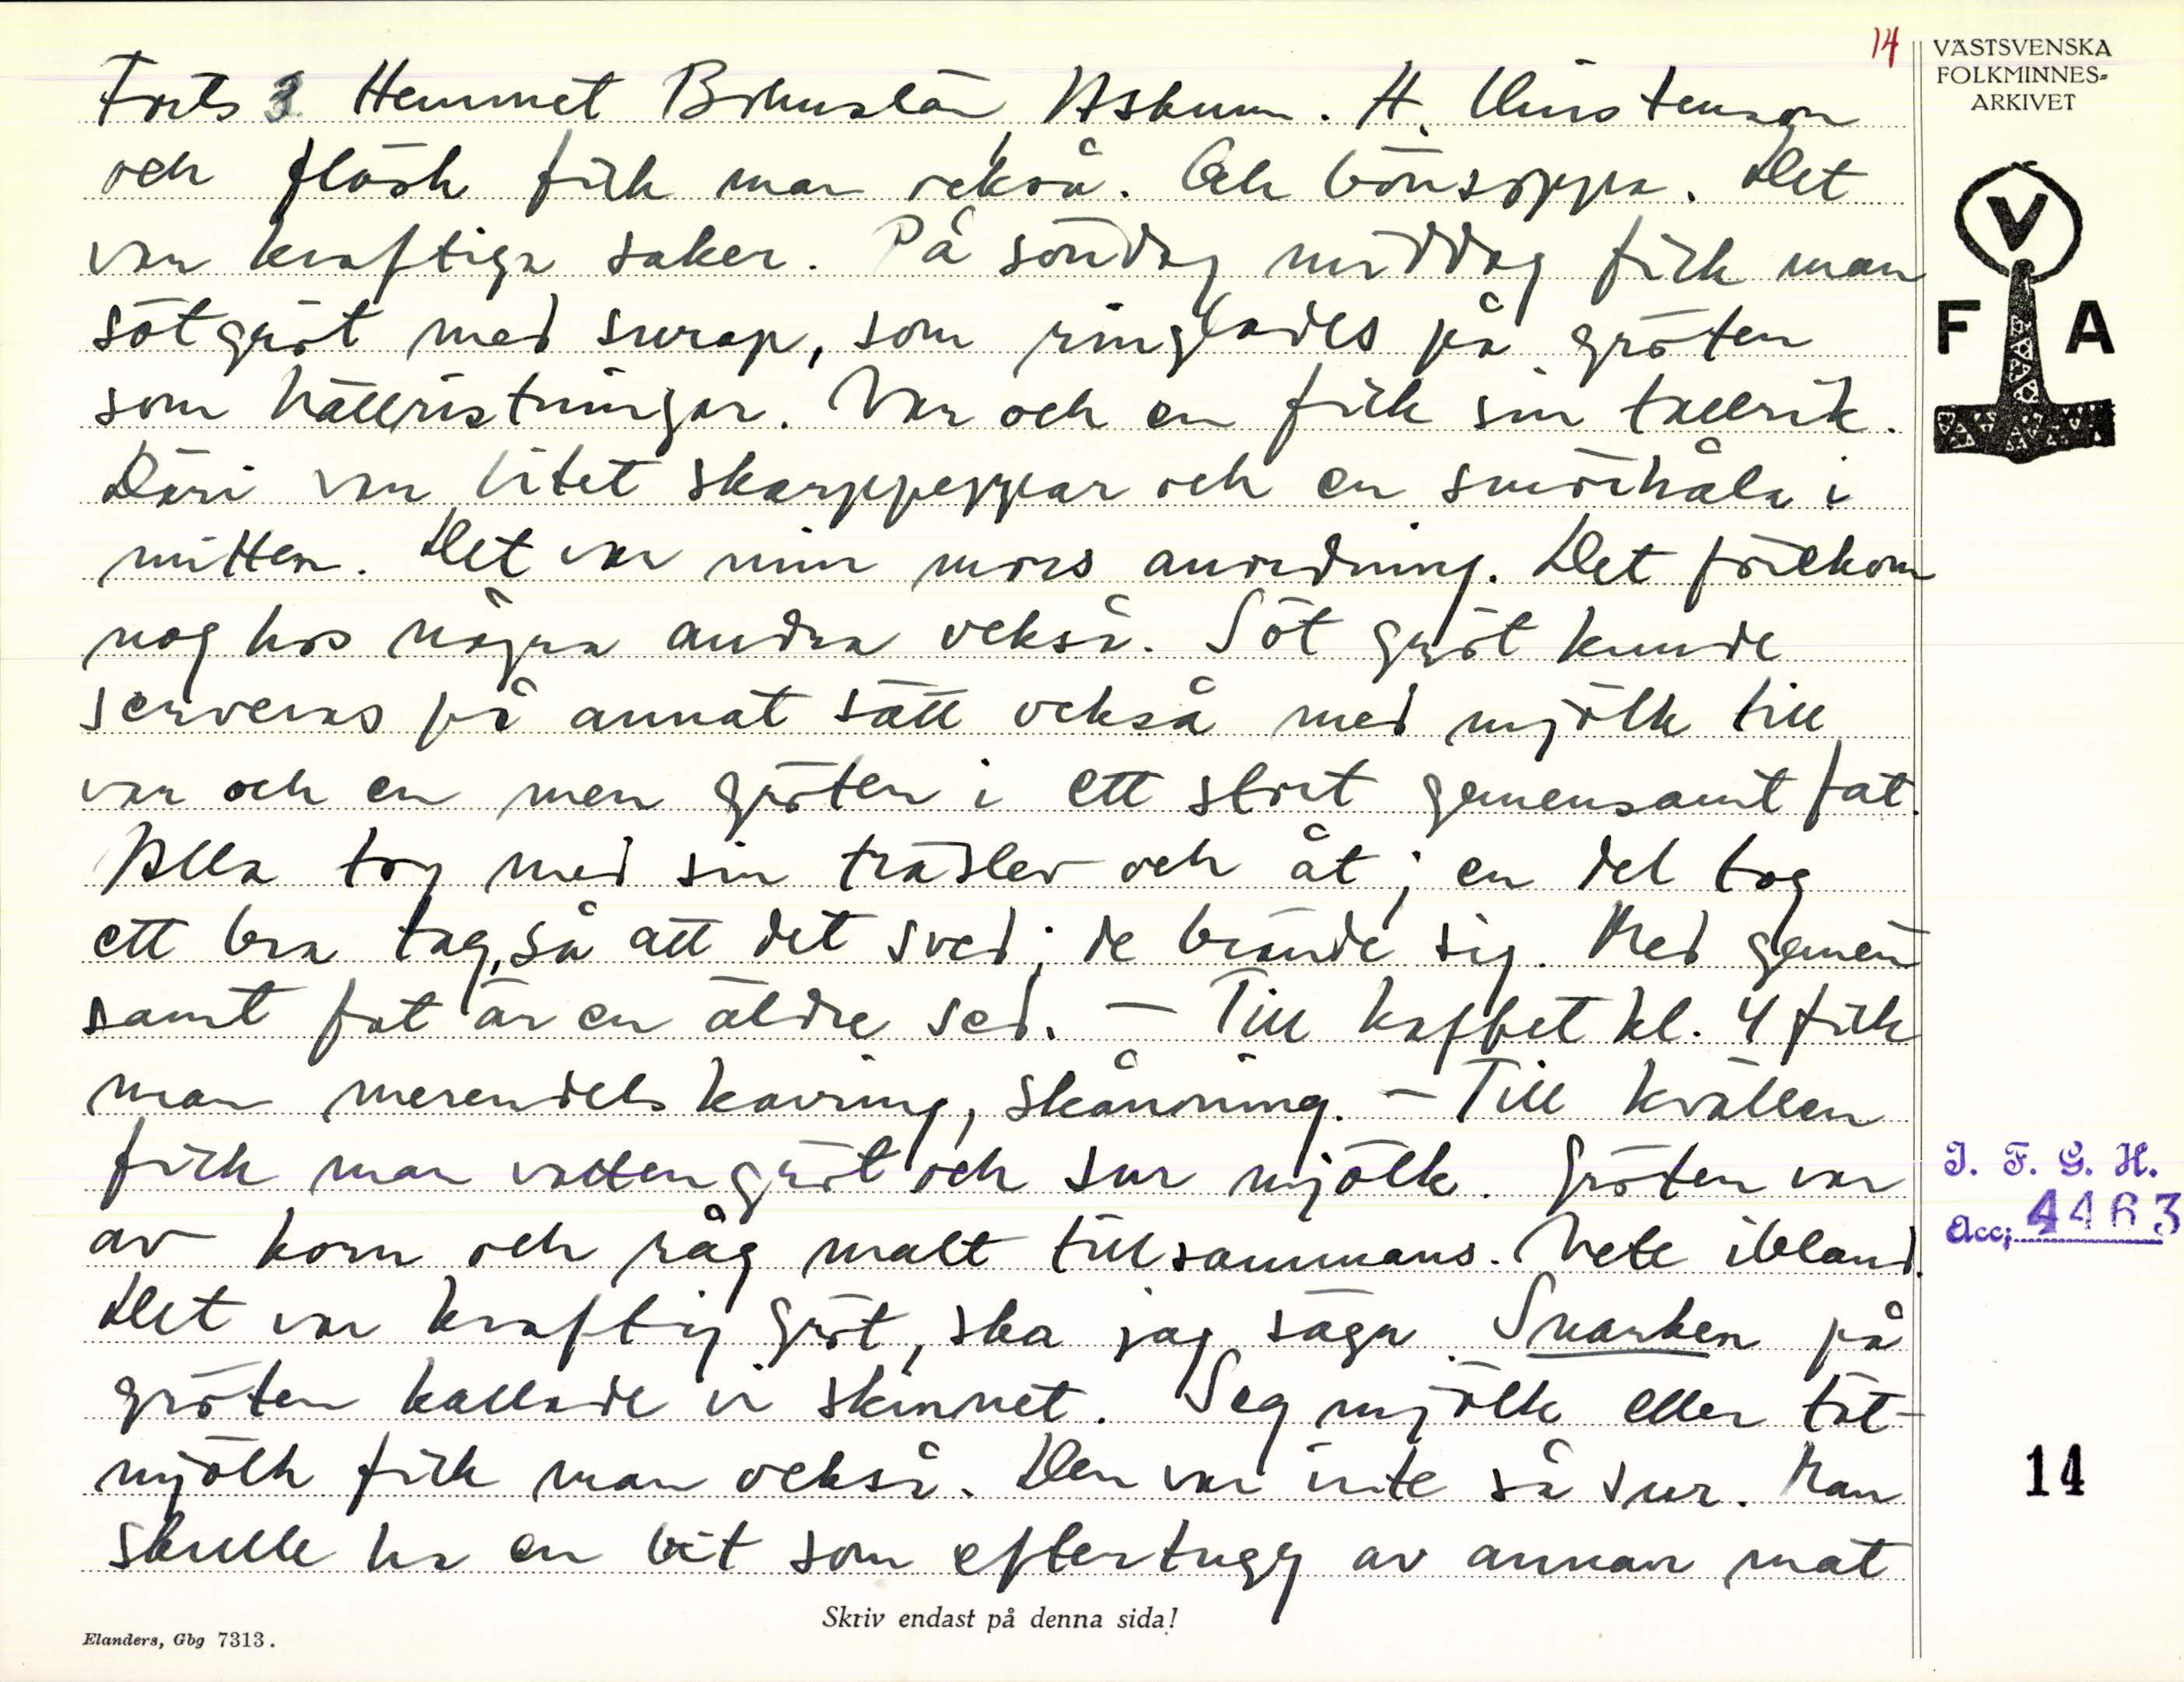 14
VÄSTSVENSKA
FOLKMINNES-
ARKIVET
V
F A
Forts 3 Hemmet Bohuslän, Askum. H. Christenson
och fläsk fick man också. Och bönsoppa. Det
var kraftiga saker. På söndag middag fick man
sötgröt med surap, som ringlades på gröten
som hällristningar. Var och en fick sin tallrik.
Däri var litet skarppeppar och en smörhåla i
mitten. Det var min mors anordning. Det förekom
nog hos några andra också. Söt gröt kunde
serveras på annat sätt också med mjölk till
var och en men gröten i ett stort gemensamt fat.
Alla tog med sin träslev och åt; en del tog
ett bra tag, så att det sved; de brände sig. Med gemen
samt fat är en äldre sed. – Till kaffet kl. 4 fick
man merendels kavring, skånning. – Till kvällen
fick man vattengröt och sur mjölk. Gröten var
av korn och råg malt tillsammans. Vete ibland.
Det var kraftig gröt, ska jag säga. Snarken på
gröten kallade vi skinnet. Seg mjölk eller tät-
mjölk fick man också. Den var inte så sur. Man
skulle ha en bit som eftertugg av annan mat
I. F. G. H.
Acc; 4463
14
Skriv endast på denna sida!
Elanders, Gbg 7313.